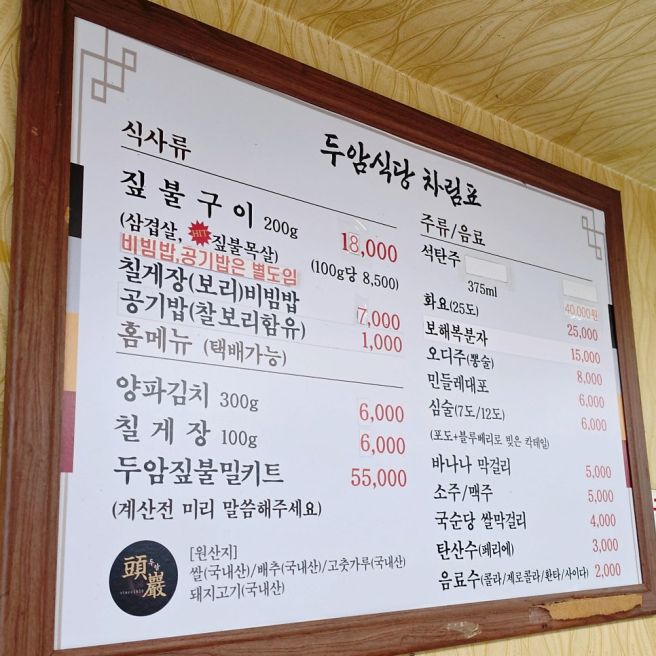 두암식당 차림표
식사류
짚불구이 200g 18,000
(삼겹살, HIT 짚불목살) (100g당 8,500)
비빔밥,공기밥은 별도임
칠게장(보리)비빔밥 7,000
공기밥(찰보리함유) 1,000
홈메뉴 (택배가능)
양파김치 300g 6,000
칠게장 100g 6,000
두암짚불밀키트 55,000
(계산전 미리 말씀해주세요)
頭巖
두암
[원산지]
쌀(국내산)/배추(국내산)/고춧가루(국내산)
돼지고기(국내산)
주류/음료
석탄주
375ml
화요(25도) 40,000원
보해복분자 25,000
오디주(뽕술) 15,000
민들레대포 8,000
심술(7도/12도) 6,000
6,000
(포도+블루베리로 빚은 칵테일)
바나나 막걸리 5,000
소주/맥주 5,000
국순당 쌀막걸리 4,000
탄산수(페리에) 3,000
음료수(콜라/제로콜라/환타/사이다) 2,000